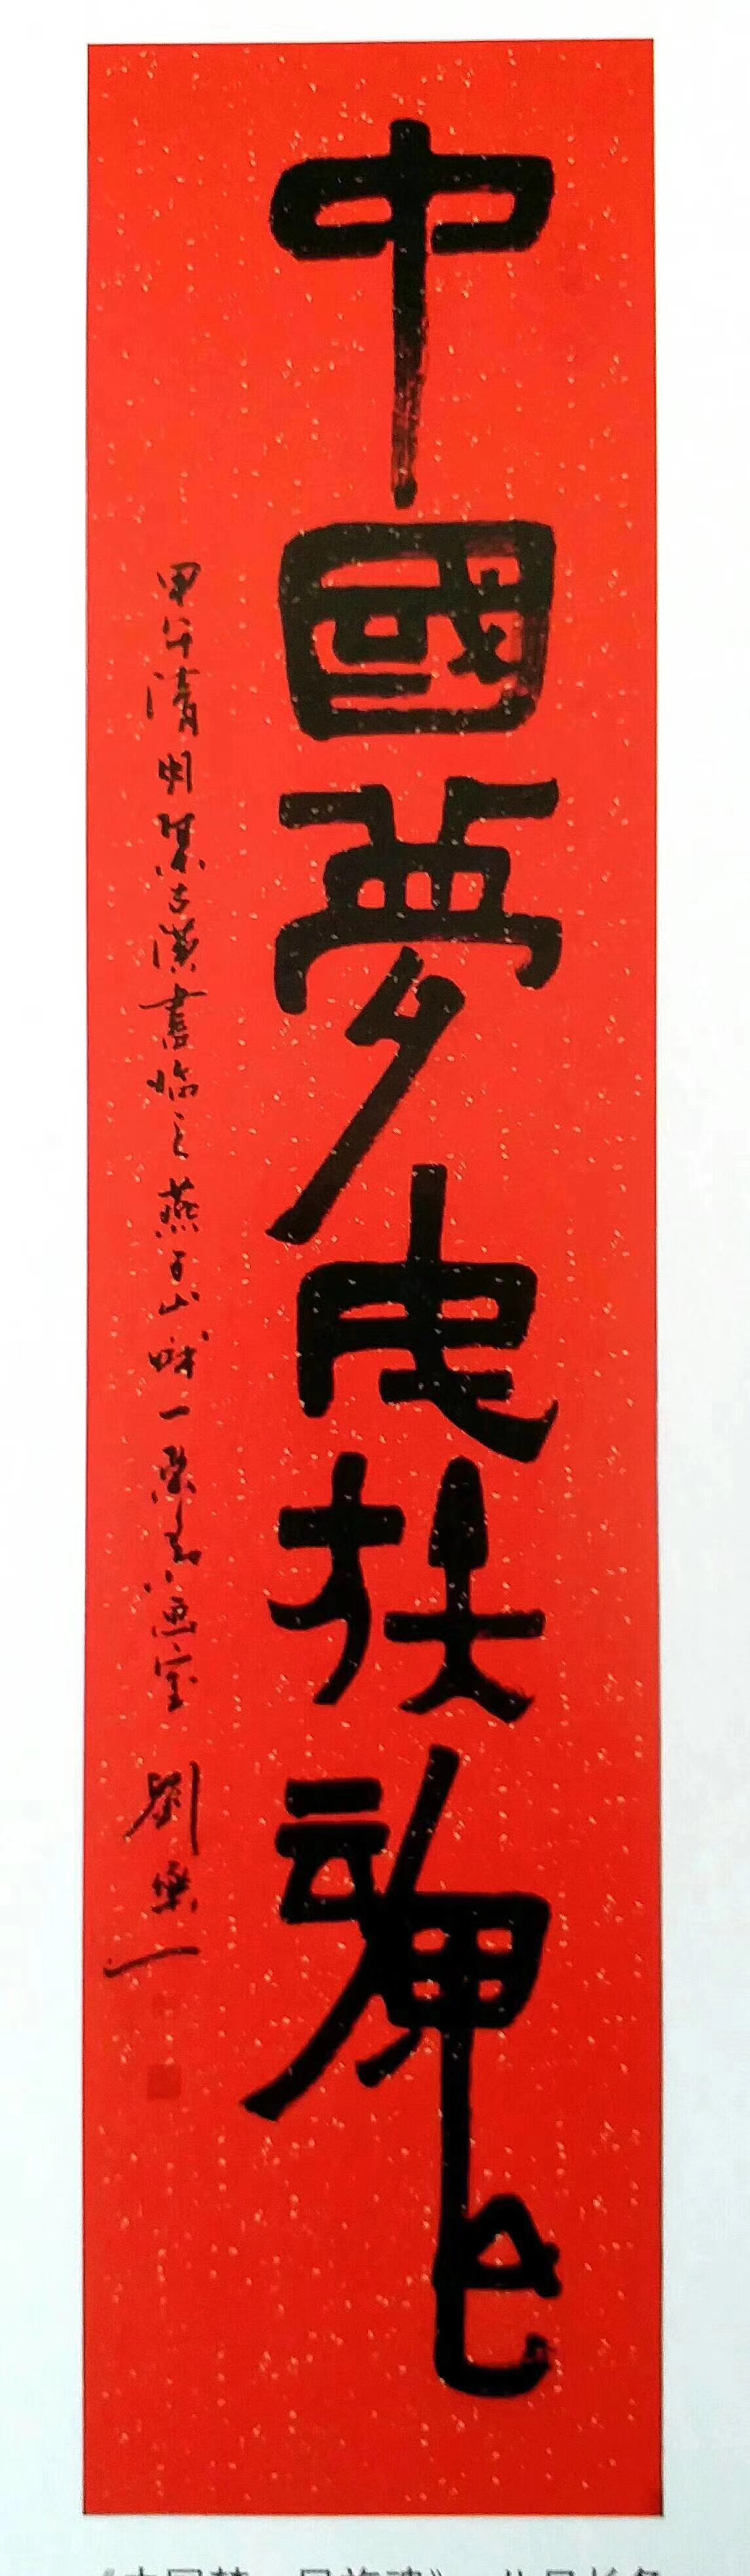 中國夢民族魂
甲午清明集古漢書臨之燕子山城一樂畫室
劉樂一
《中国梦·民族魂》